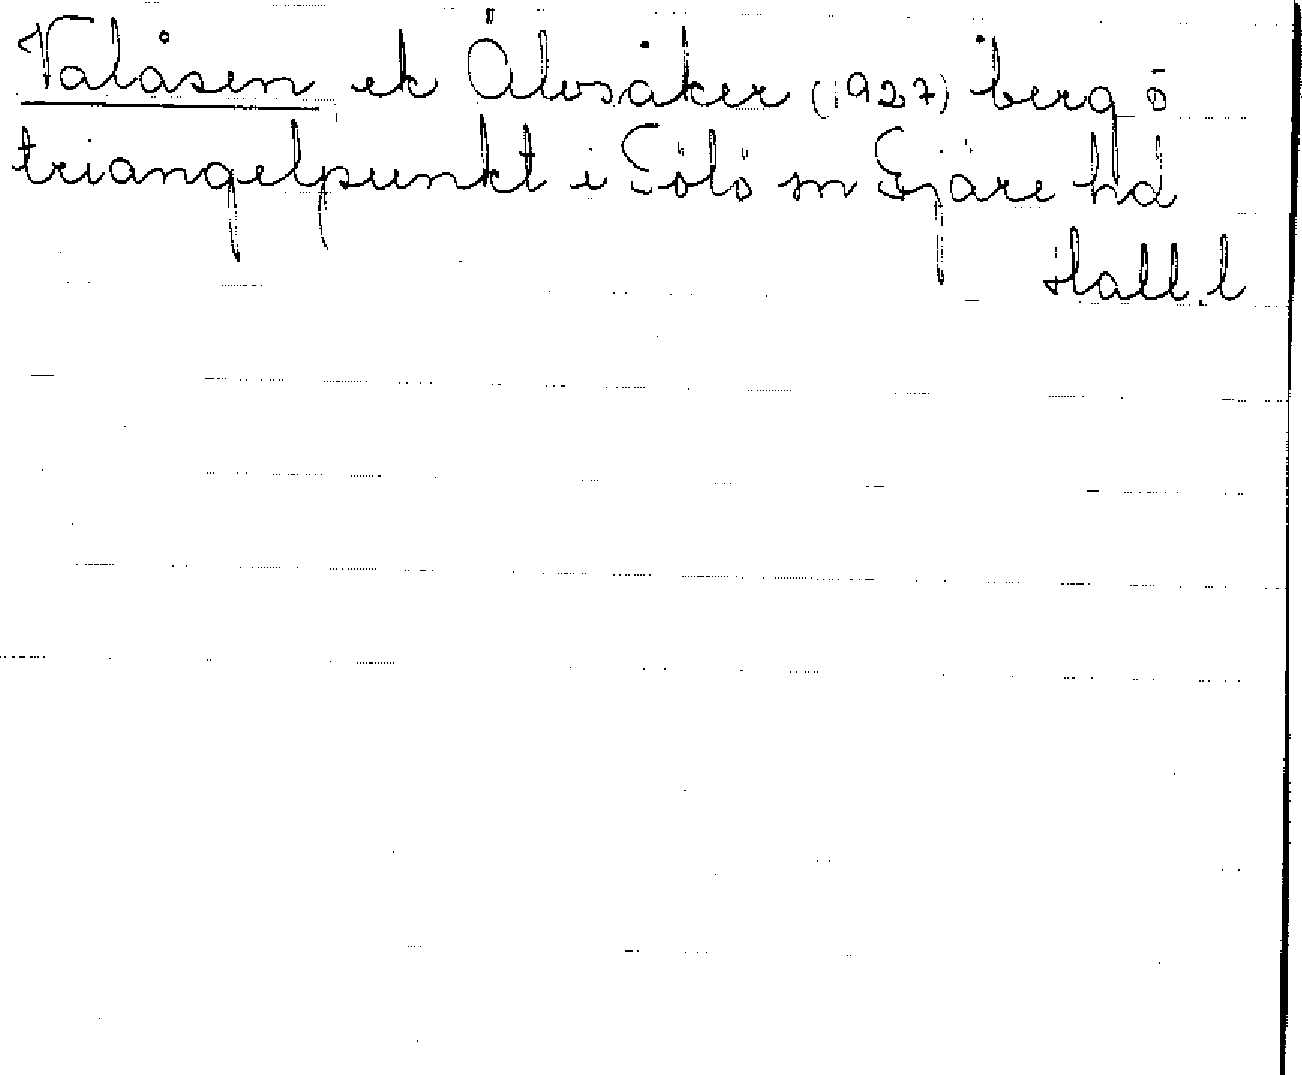 Valåsen ek Älvsåker (1927) berg o
triangelpunkt i Tölö sn Fjäre hd
Hall.l